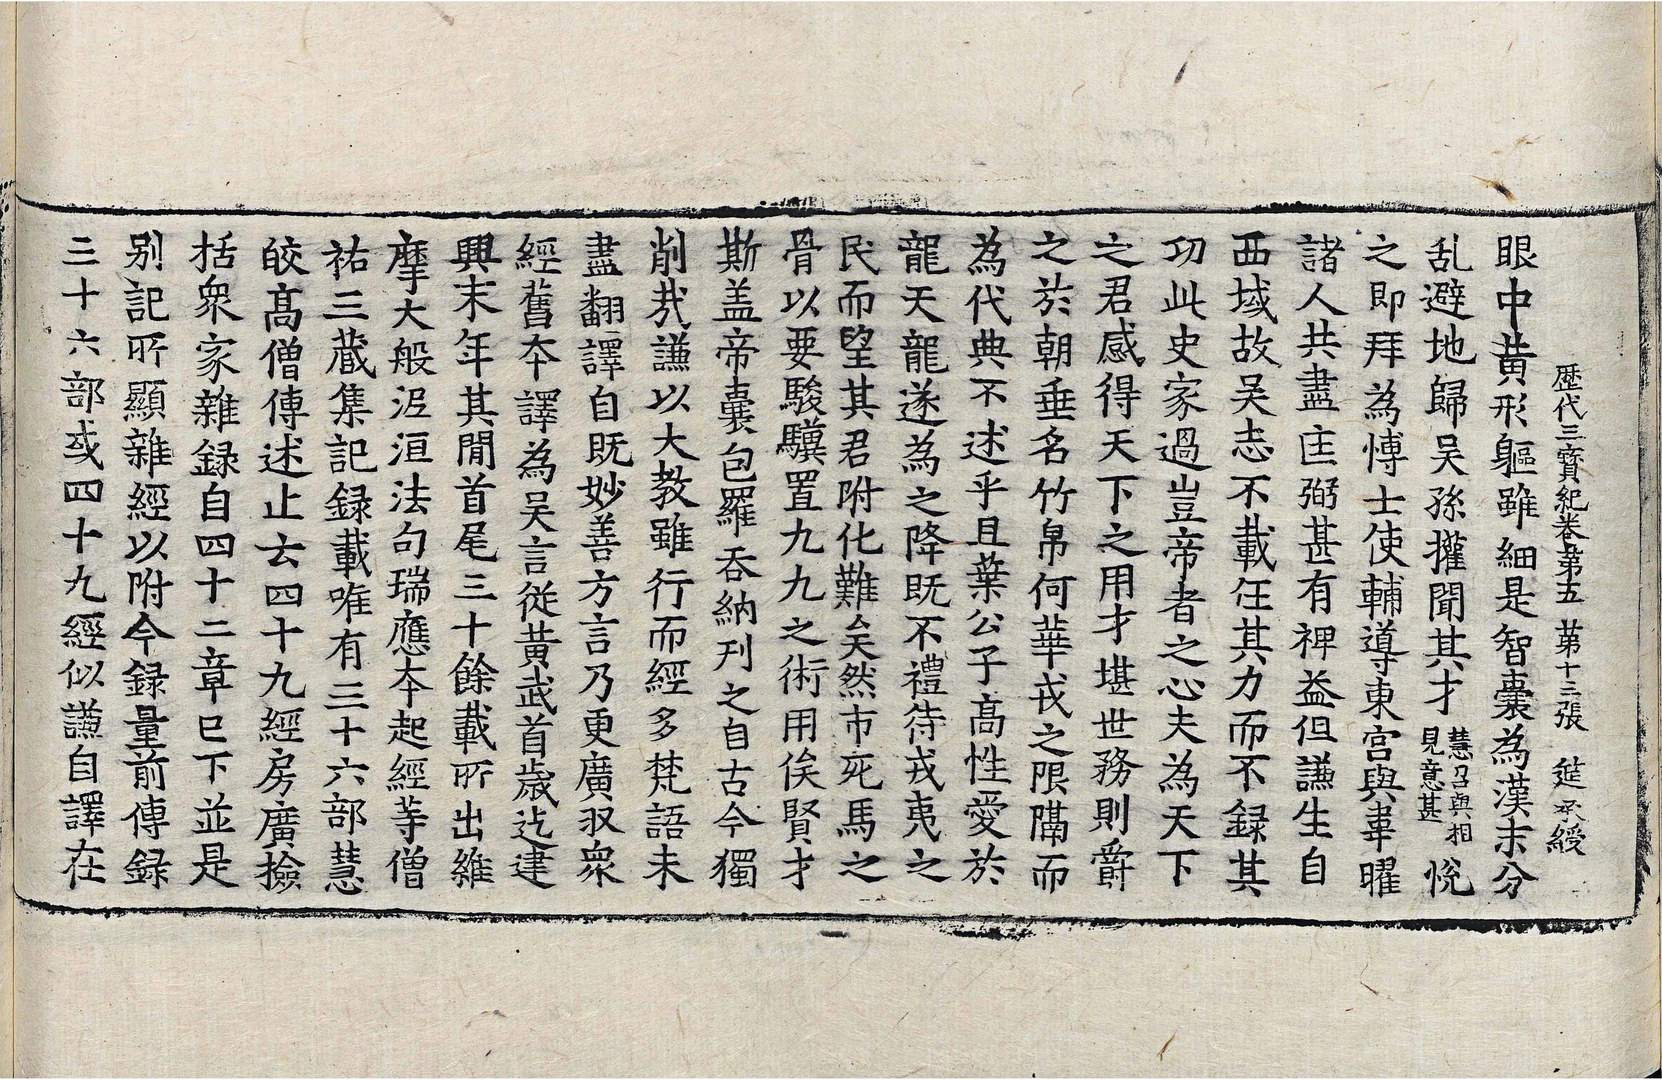 歷代三寶紀卷第五 第十三張 莚
眼中黃形軀雖細是智囊為漢末分
乱避地歸吳孫權聞其才慧召與相見意甚悅
之即拜為愽士使輔導東宮與韋曜
諸人共盡匡弼甚有裨益但謙生自
西域故吳志不載任其力而不録其
功此史家過豈帝者之心夫為天下
之君感得天下之用才堪世務則爵
之於朝垂名竹帛何華戎之限隔而
為代典不述乎且葉公子高性愛於
龍天龍遂為之降既不禮待戎夷之
民而望其君附化難矣然市死馬之
骨以要駿驥置九九之術用俟賢才
斯盖帝囊包羅吞納刋之自古今獨
削㢤謙以大教雖行而經多梵語未
盡翻譯自既妙善方言乃更廣収衆
經舊夲譯為吳言從黃武首歲迄建
興末年其閒首尾三十餘載所出維
摩大般泥洹法句瑞應夲起經等僧
祐三藏集記録載唯有三十六部慧
皎髙僧傳述止云四十九經房廣撿
括衆家雜録自四十二章已下並是
别記所顯雜經以附今録量前傳録
三十六部或四十九經似謙自譯在